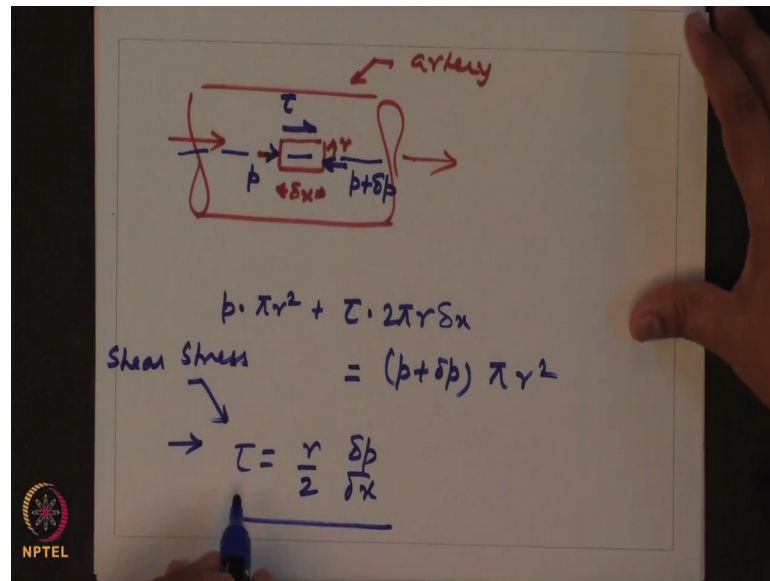 artery
τ
r
p
p+δp
δx
p· πr² + τ· 2πrδx
Shear Stress
= (p+δp) πr²
→ τ = r/2 δp/δx
NPTEL